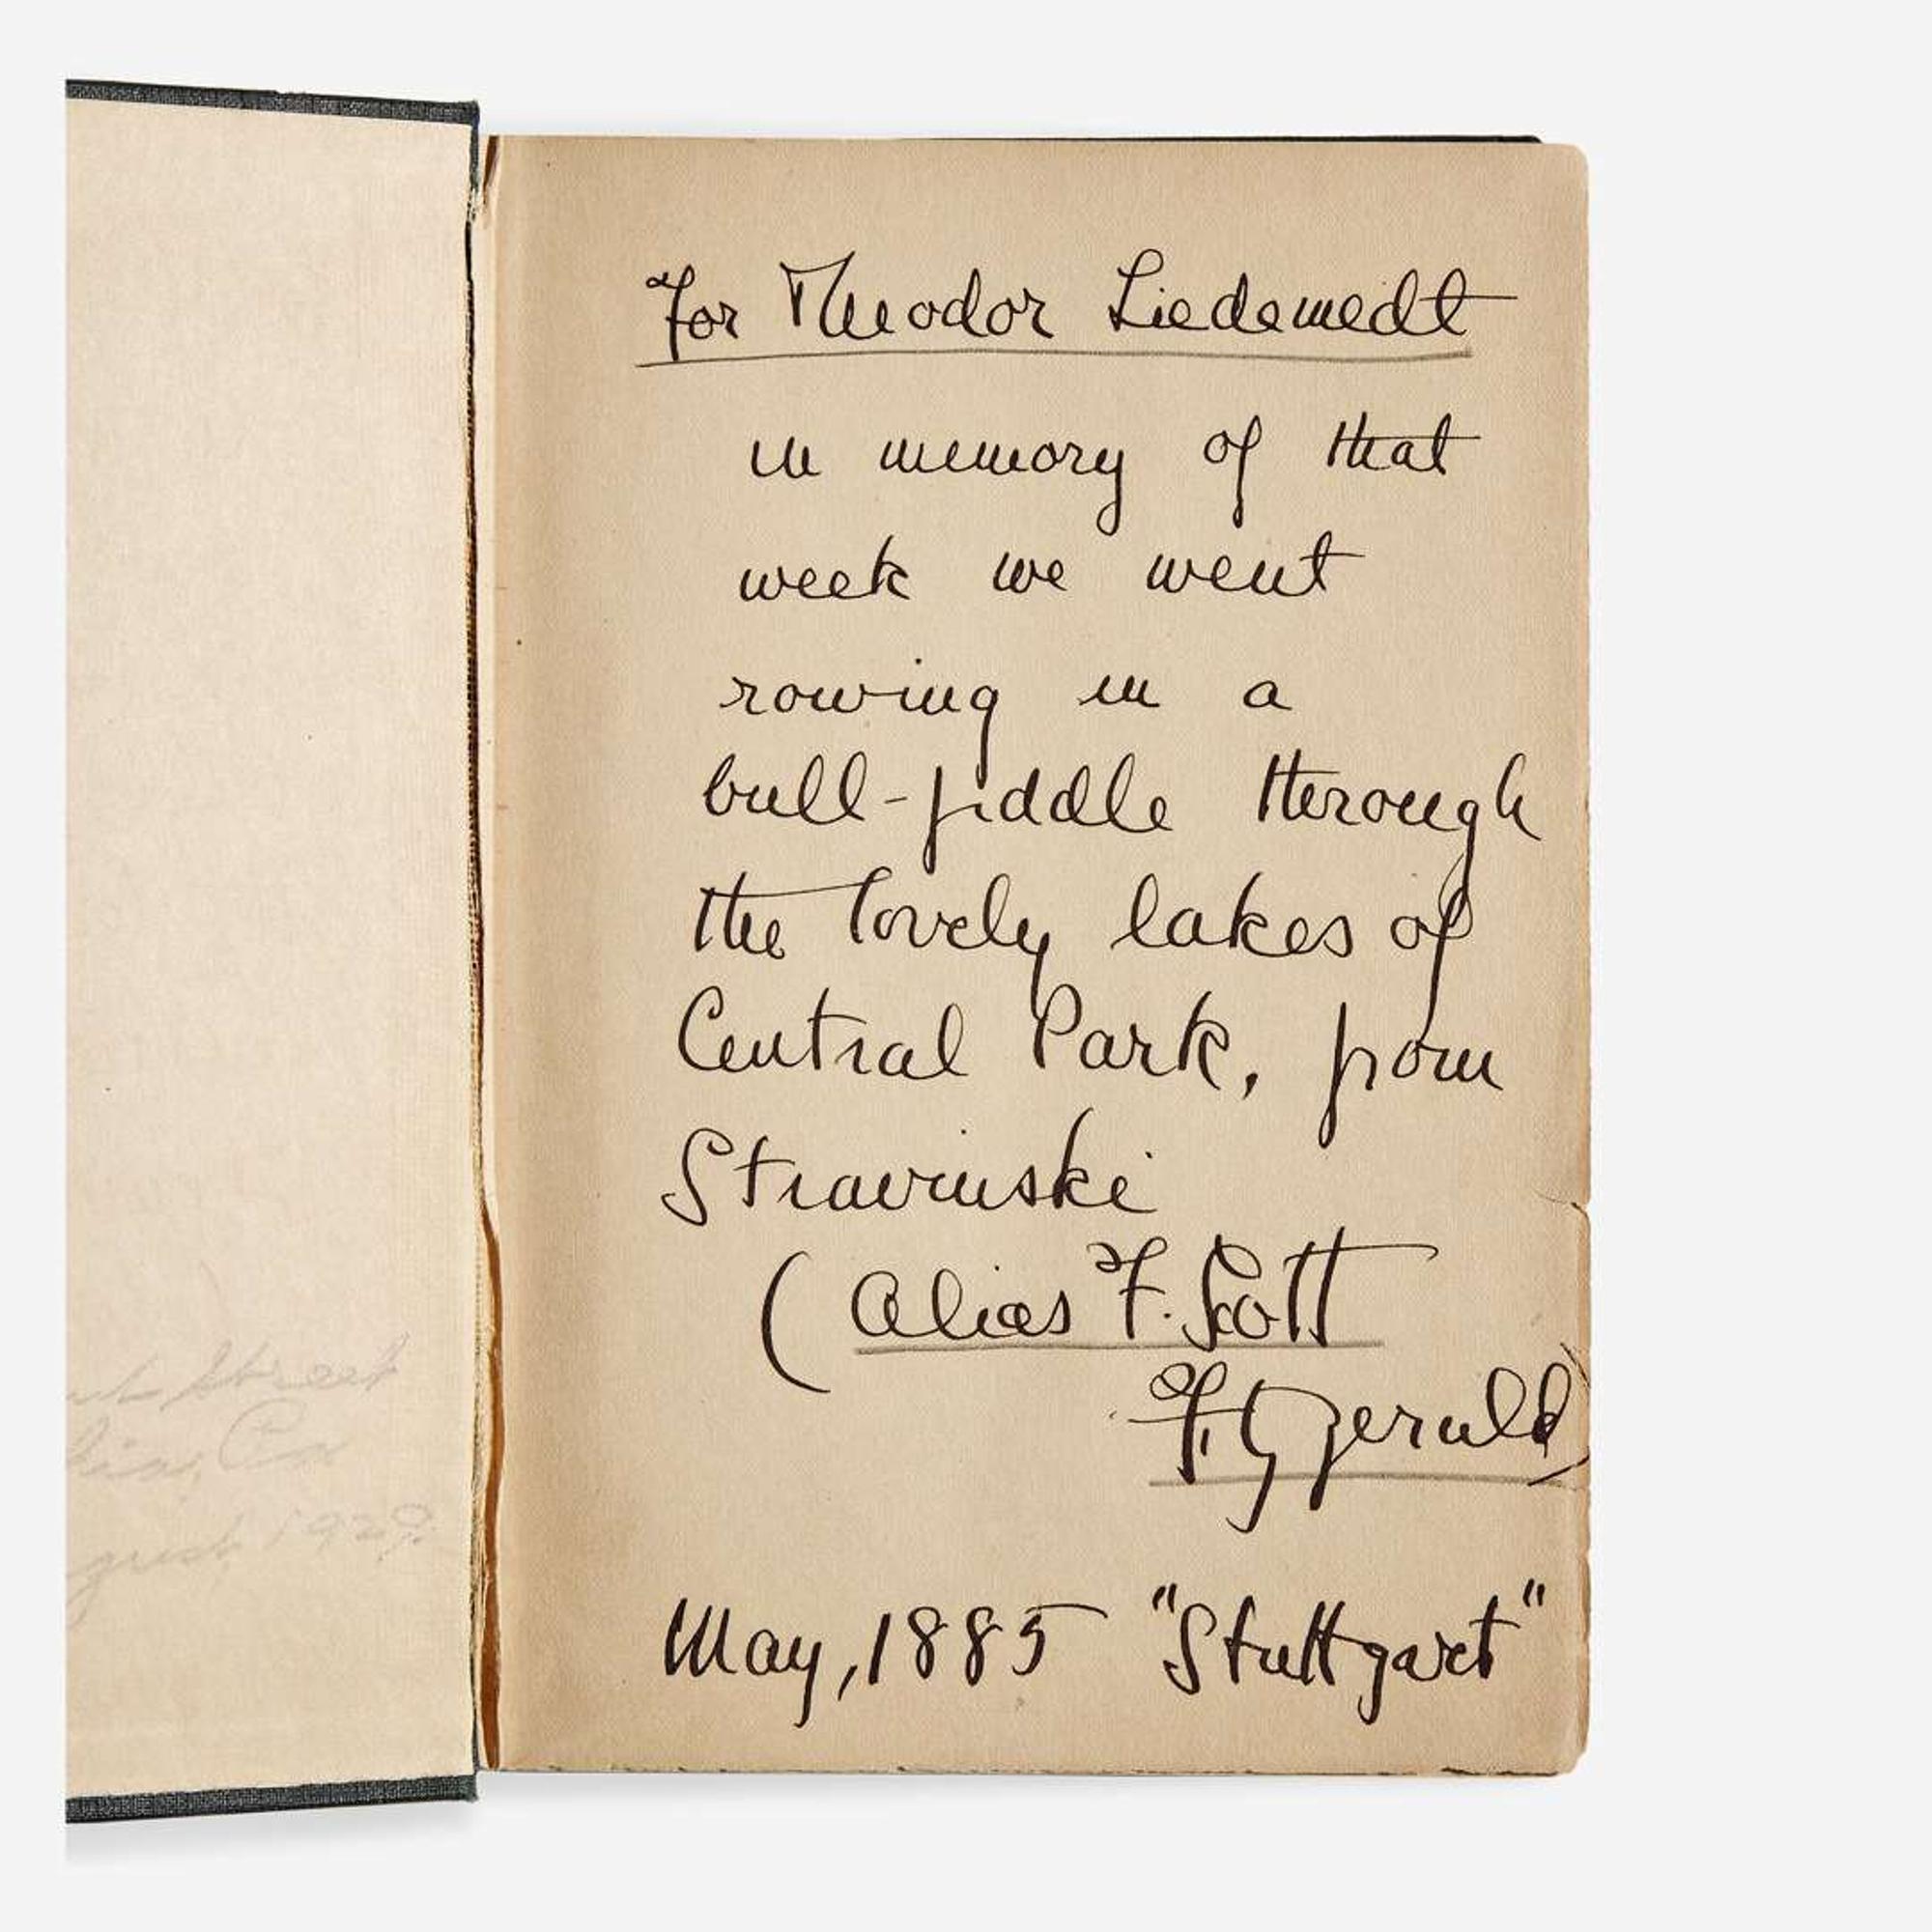 Street
1929.
For Theodor Liedemedt
in memory of that
week we went
rowing in a
bull-fiddle through
the lovely lakes of
Central Park, from
Stravinski
(Alias F. Scott
Fitzgerald)
May, 1885 "Stuttgart"